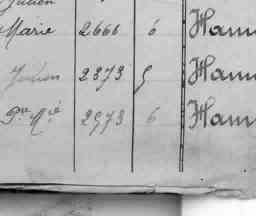 Julien
Marie 2666 6 Ham
Julien 2373 5 Ham
2973 6 Ham